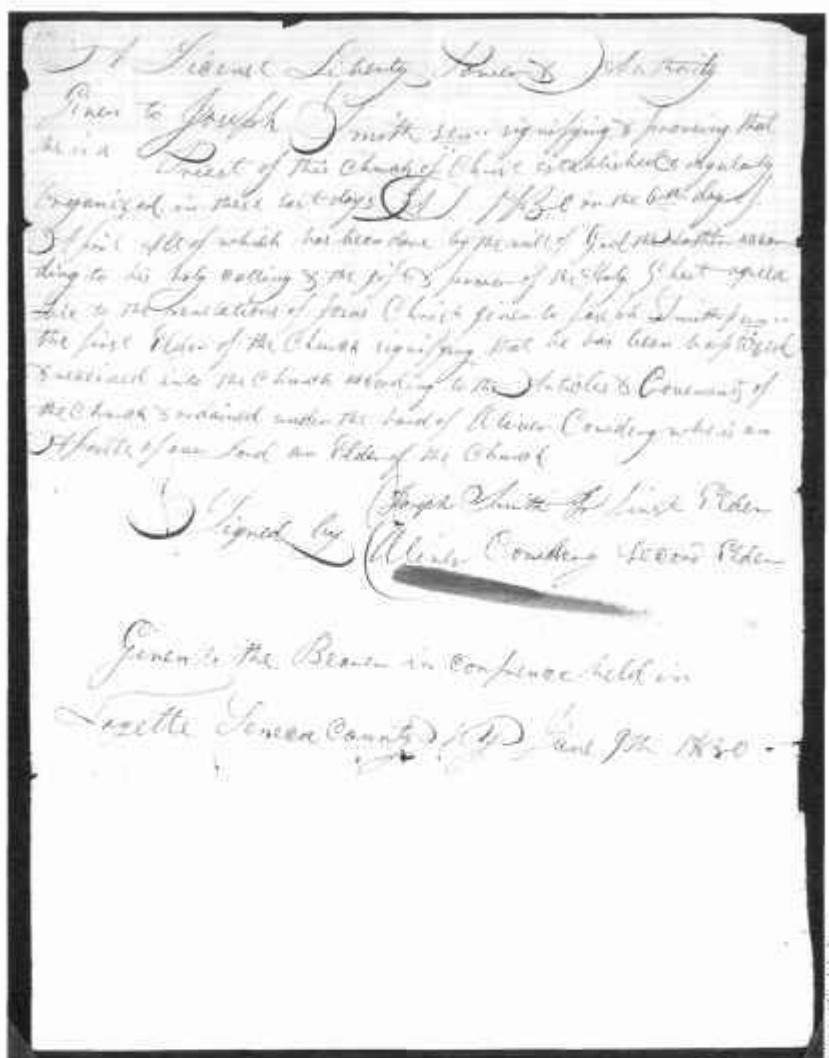 A Licence Liberty Power & Authority
Given to Joseph Smith senr signifying & proveing that
he is a Priest of this Church of Christ established & regularly
Organized in these last days AD 1830 on the 6th day of
April All of which has been done by the will of God the Father accor
ding to his holy calling & the gift & power of the Holy Ghost agreea
ble to the revelations of Jesus Christ given to Joseph Smith Junr
the first Elder of the Church signifying that he has been baptized
& received into the Church according to the Articles & Covenants of
the Church & ordained under the hand of Oliver Cowdery who is an
Apostle of our Lord an Elder of the Church
Joseph Smith Jr First Elder
Signed by
Oliver Cowdery Second Elder
Given to the Bearer in confrence held in
Fayette Seneca County NY June 9th 1830